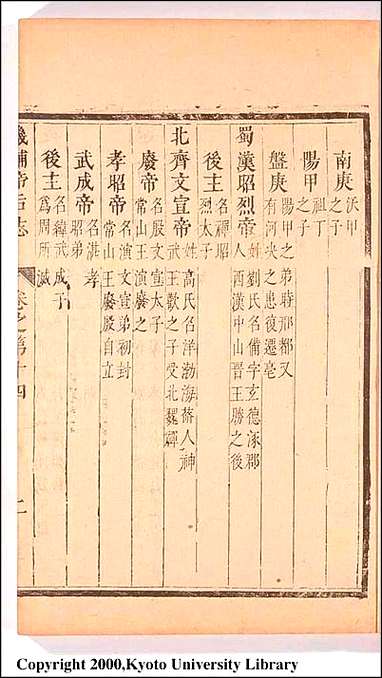 南庚 沃甲
之子
陽甲 祖丁
之子
盤庚 陽甲之弟時邢都又
有河決之患復遷亳
蜀漢昭烈帝 姓劉氏名備字玄德涿郡
人西漢中山晉王勝之後
後主 名禪昭
烈太子
北齊文宣帝 姓高氏名洋渤海蓨人神
武王歡之子受北魏禪
廢帝 名殷文宣太子
常山王演廢之
孝昭帝 名演文宣弟初封
常山王廢殷自立
武成帝 名湛孝
昭弟
後主 名緯武成子
為周所滅
畿輔帝后志 卷之第十四 二
Copyright 2000,Kyoto University Library